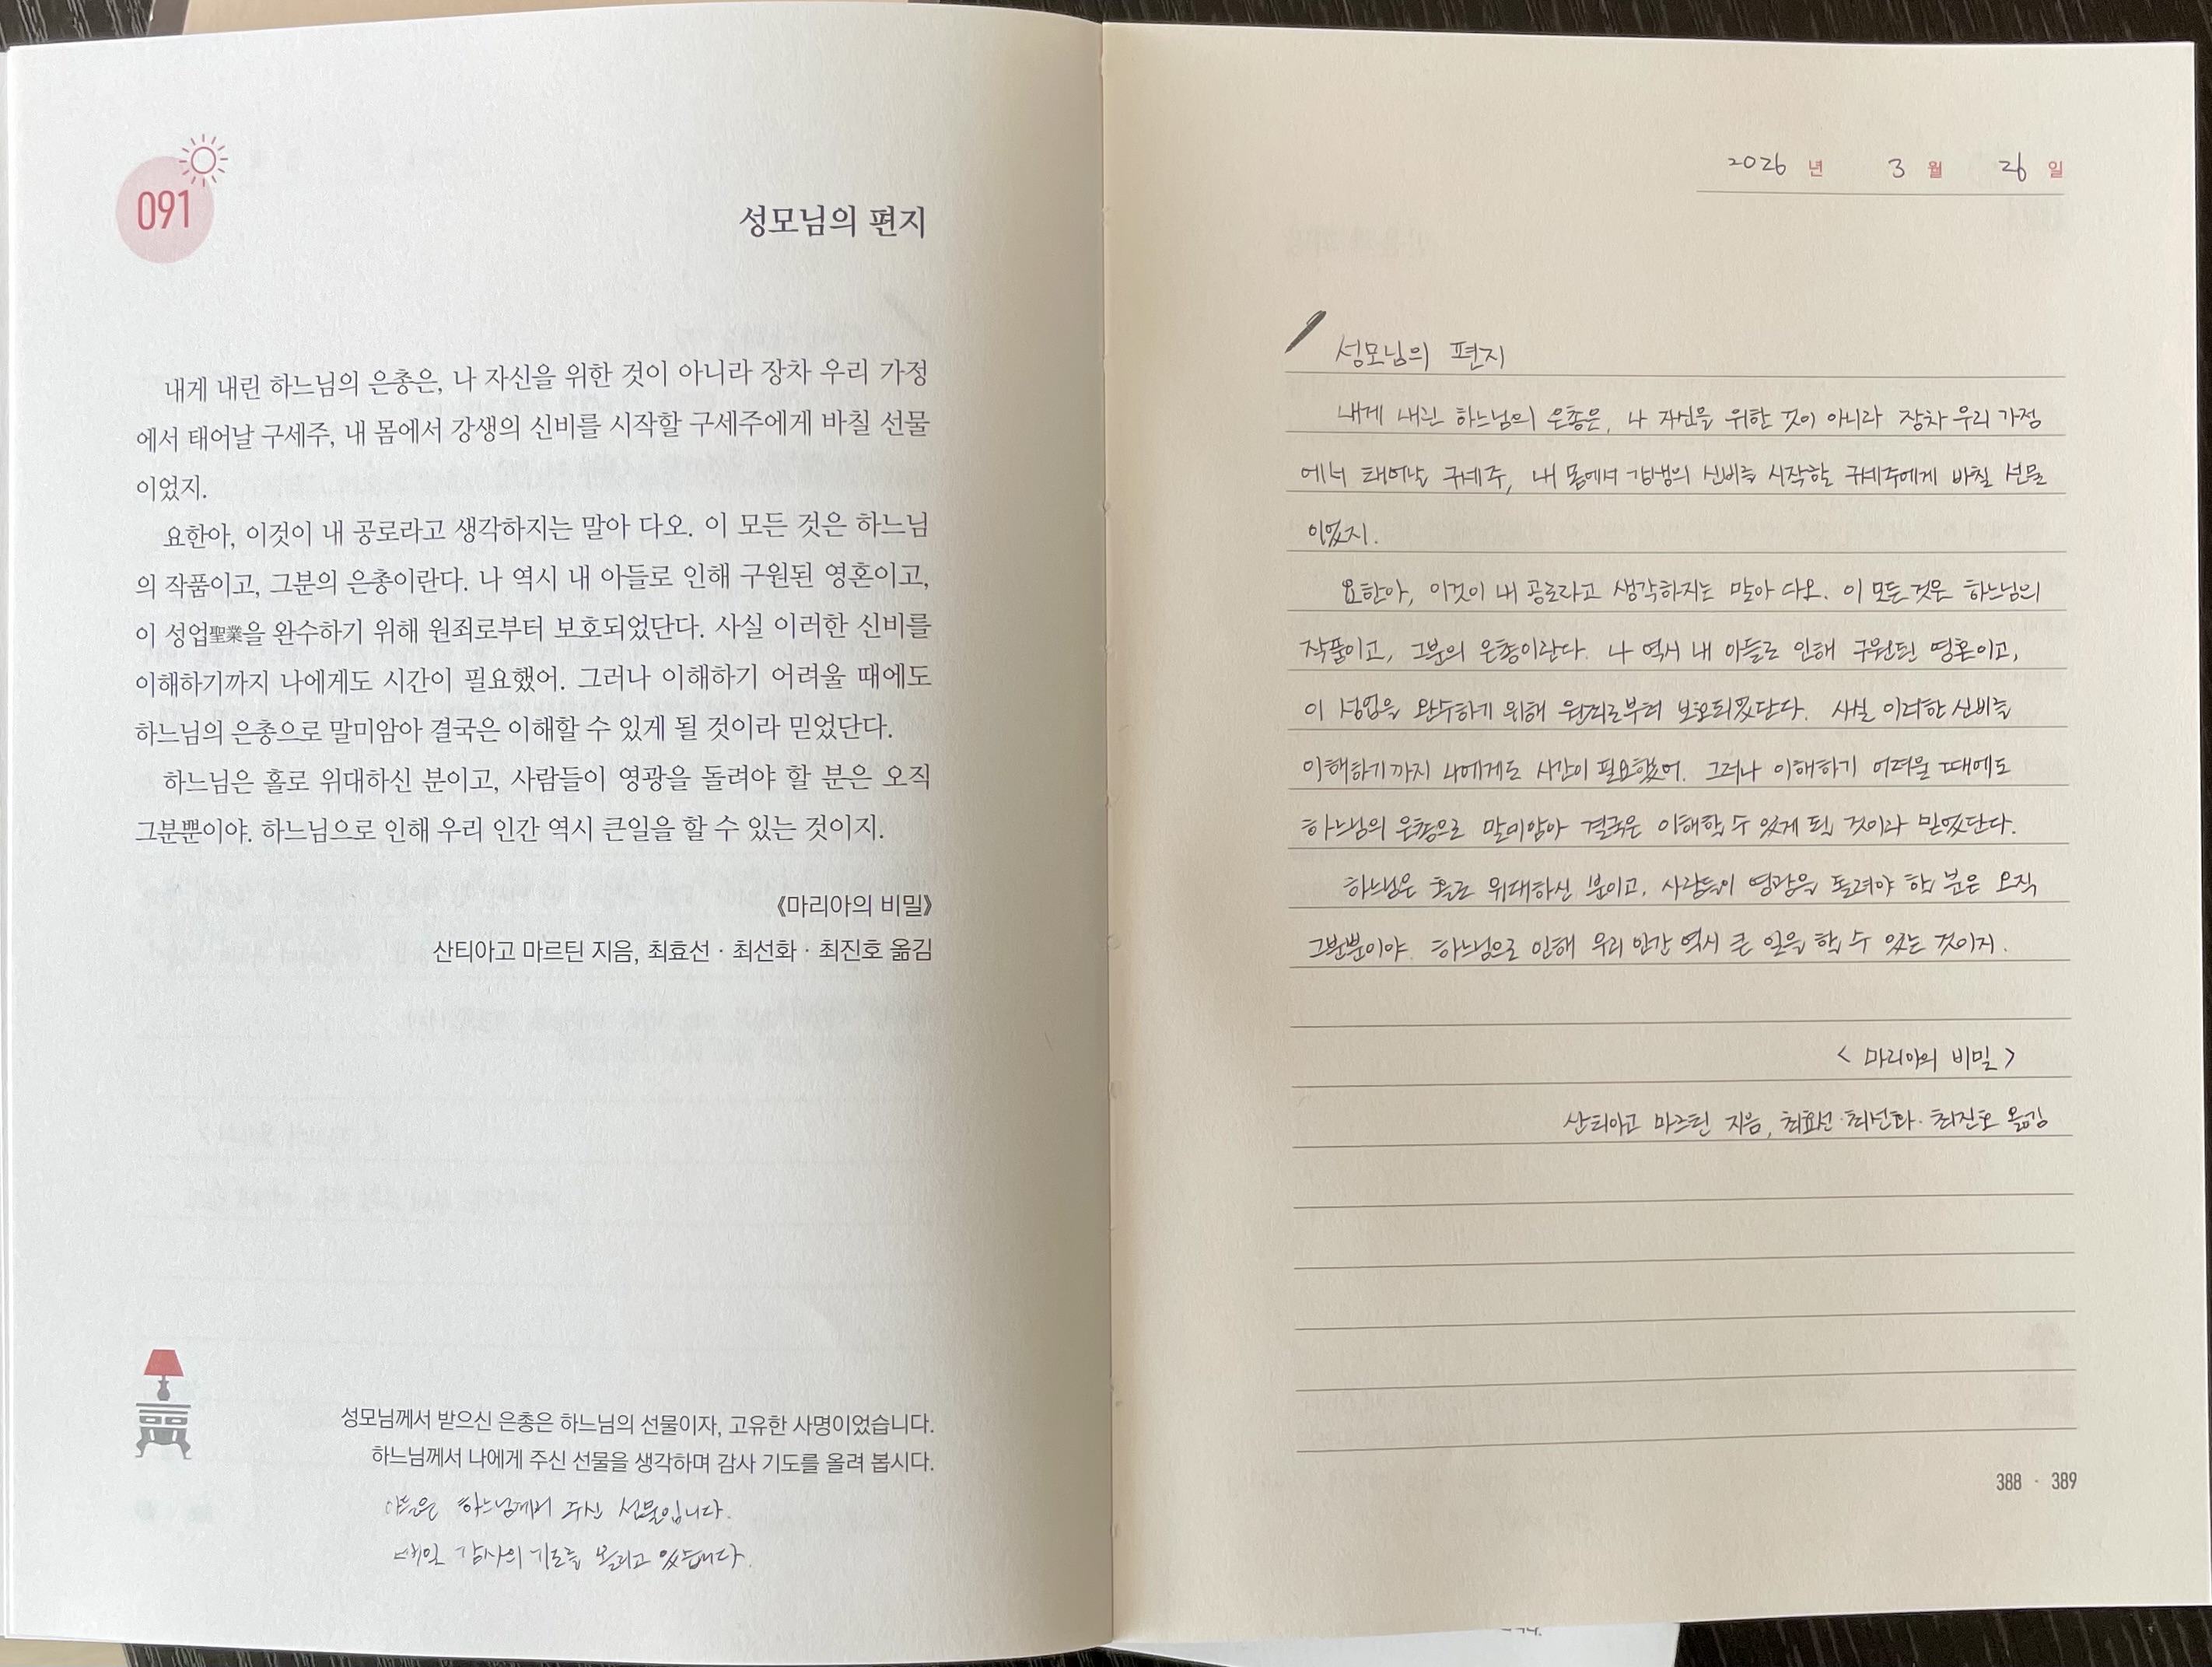 091
성모님의 편지
내게 내린 하느님의 은총은, 나 자신을 위한 것이 아니라 장차 우리 가정
에서 태어날 구세주, 내 몸에서 강생의 신비를 시작할 구세주에게 바칠 선물
이었지.
요한아, 이것이 내 공로라고 생각하지는 말아 다오. 이 모든 것은 하느님
의 작품이고, 그분의 은총이란다. 나 역시 내 아들로 인해 구원된 영혼이고,
이 성업聖業을 완수하기 위해 원죄로부터 보호되었단다. 사실 이러한 신비를
이해하기까지 나에게도 시간이 필요했어. 그러나 이해하기 어려울 때에도
하느님의 은총으로 말미암아 결국은 이해할 수 있게 될 것이라 믿었단다.
하느님은 홀로 위대하신 분이고, 사람들이 영광을 돌려야 할 분은 오직
그분뿐이야. 하느님으로 인해 우리 인간 역시 큰일을 할 수 있는 것이지.
《마리아의 비밀》
산티아고 마르틴 지음, 최효선 · 최선화 · 최진호 옮김
성모님께서 받으신 은총은 하느님의 선물이자, 고유한 사명이었습니다.
하느님께서 나에게 주신 선물을 생각하며 감사 기도를 올려 봅시다.
하느님께서 주신 선물입니다.
매일 감사의 기도를 올리고 있습니다.
2026 년 3 월 26 일
성모님의 편지
내게 내린 하느님의 은총은, 나 자신을 위한 것이 아니라 장차 우리 가정
에서 태어날 구세주, 내 몸에서 강생의 신비를 시작할 구세주에게 바칠 선물
이었지.
요한아, 이것이 내 공로라고 생각하지는 말아 다오. 이 모든 것은 하느님의
작품이고, 그분의 은총이란다. 나 역시 내 아들로 인해 구원된 영혼이고,
이 성업을 완수하기 위해 원죄로부터 보호되었단다. 사실 이러한 신비를
이해하기까지 나에게도 시간이 필요했어. 그러나 이해하기 어려울 때에도
하느님의 은총으로 말미암아 결국은 이해할 수 있게 될 것이라 믿었단다.
하느님은 홀로 위대하신 분이고, 사람들이 영광을 돌려야 할 분은 오직
그분뿐이야. 하느님으로 인해 우리 인간 역시 큰 일을 할 수 있는 것이지.
< 마리아의 비밀 >
산티아고 마르틴 지음, 최효선·최선화·최진호 옮김
388 · 389